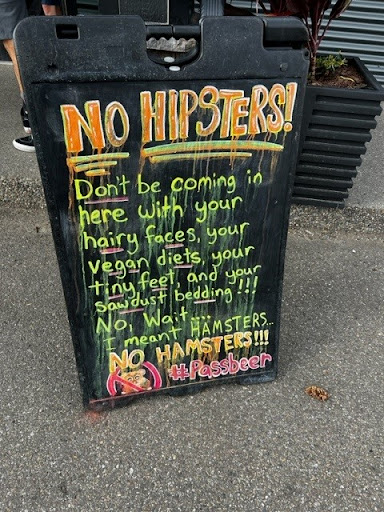 NO HIPSTERS!
Don't be coming in
here with your
hairy faces, your
vegan diets, your
tiny feet, and your
sawdust bedding!!!
No, Wait...
I meant HAMSTERS...
NO HAMSTERS!!!
#Passbeer